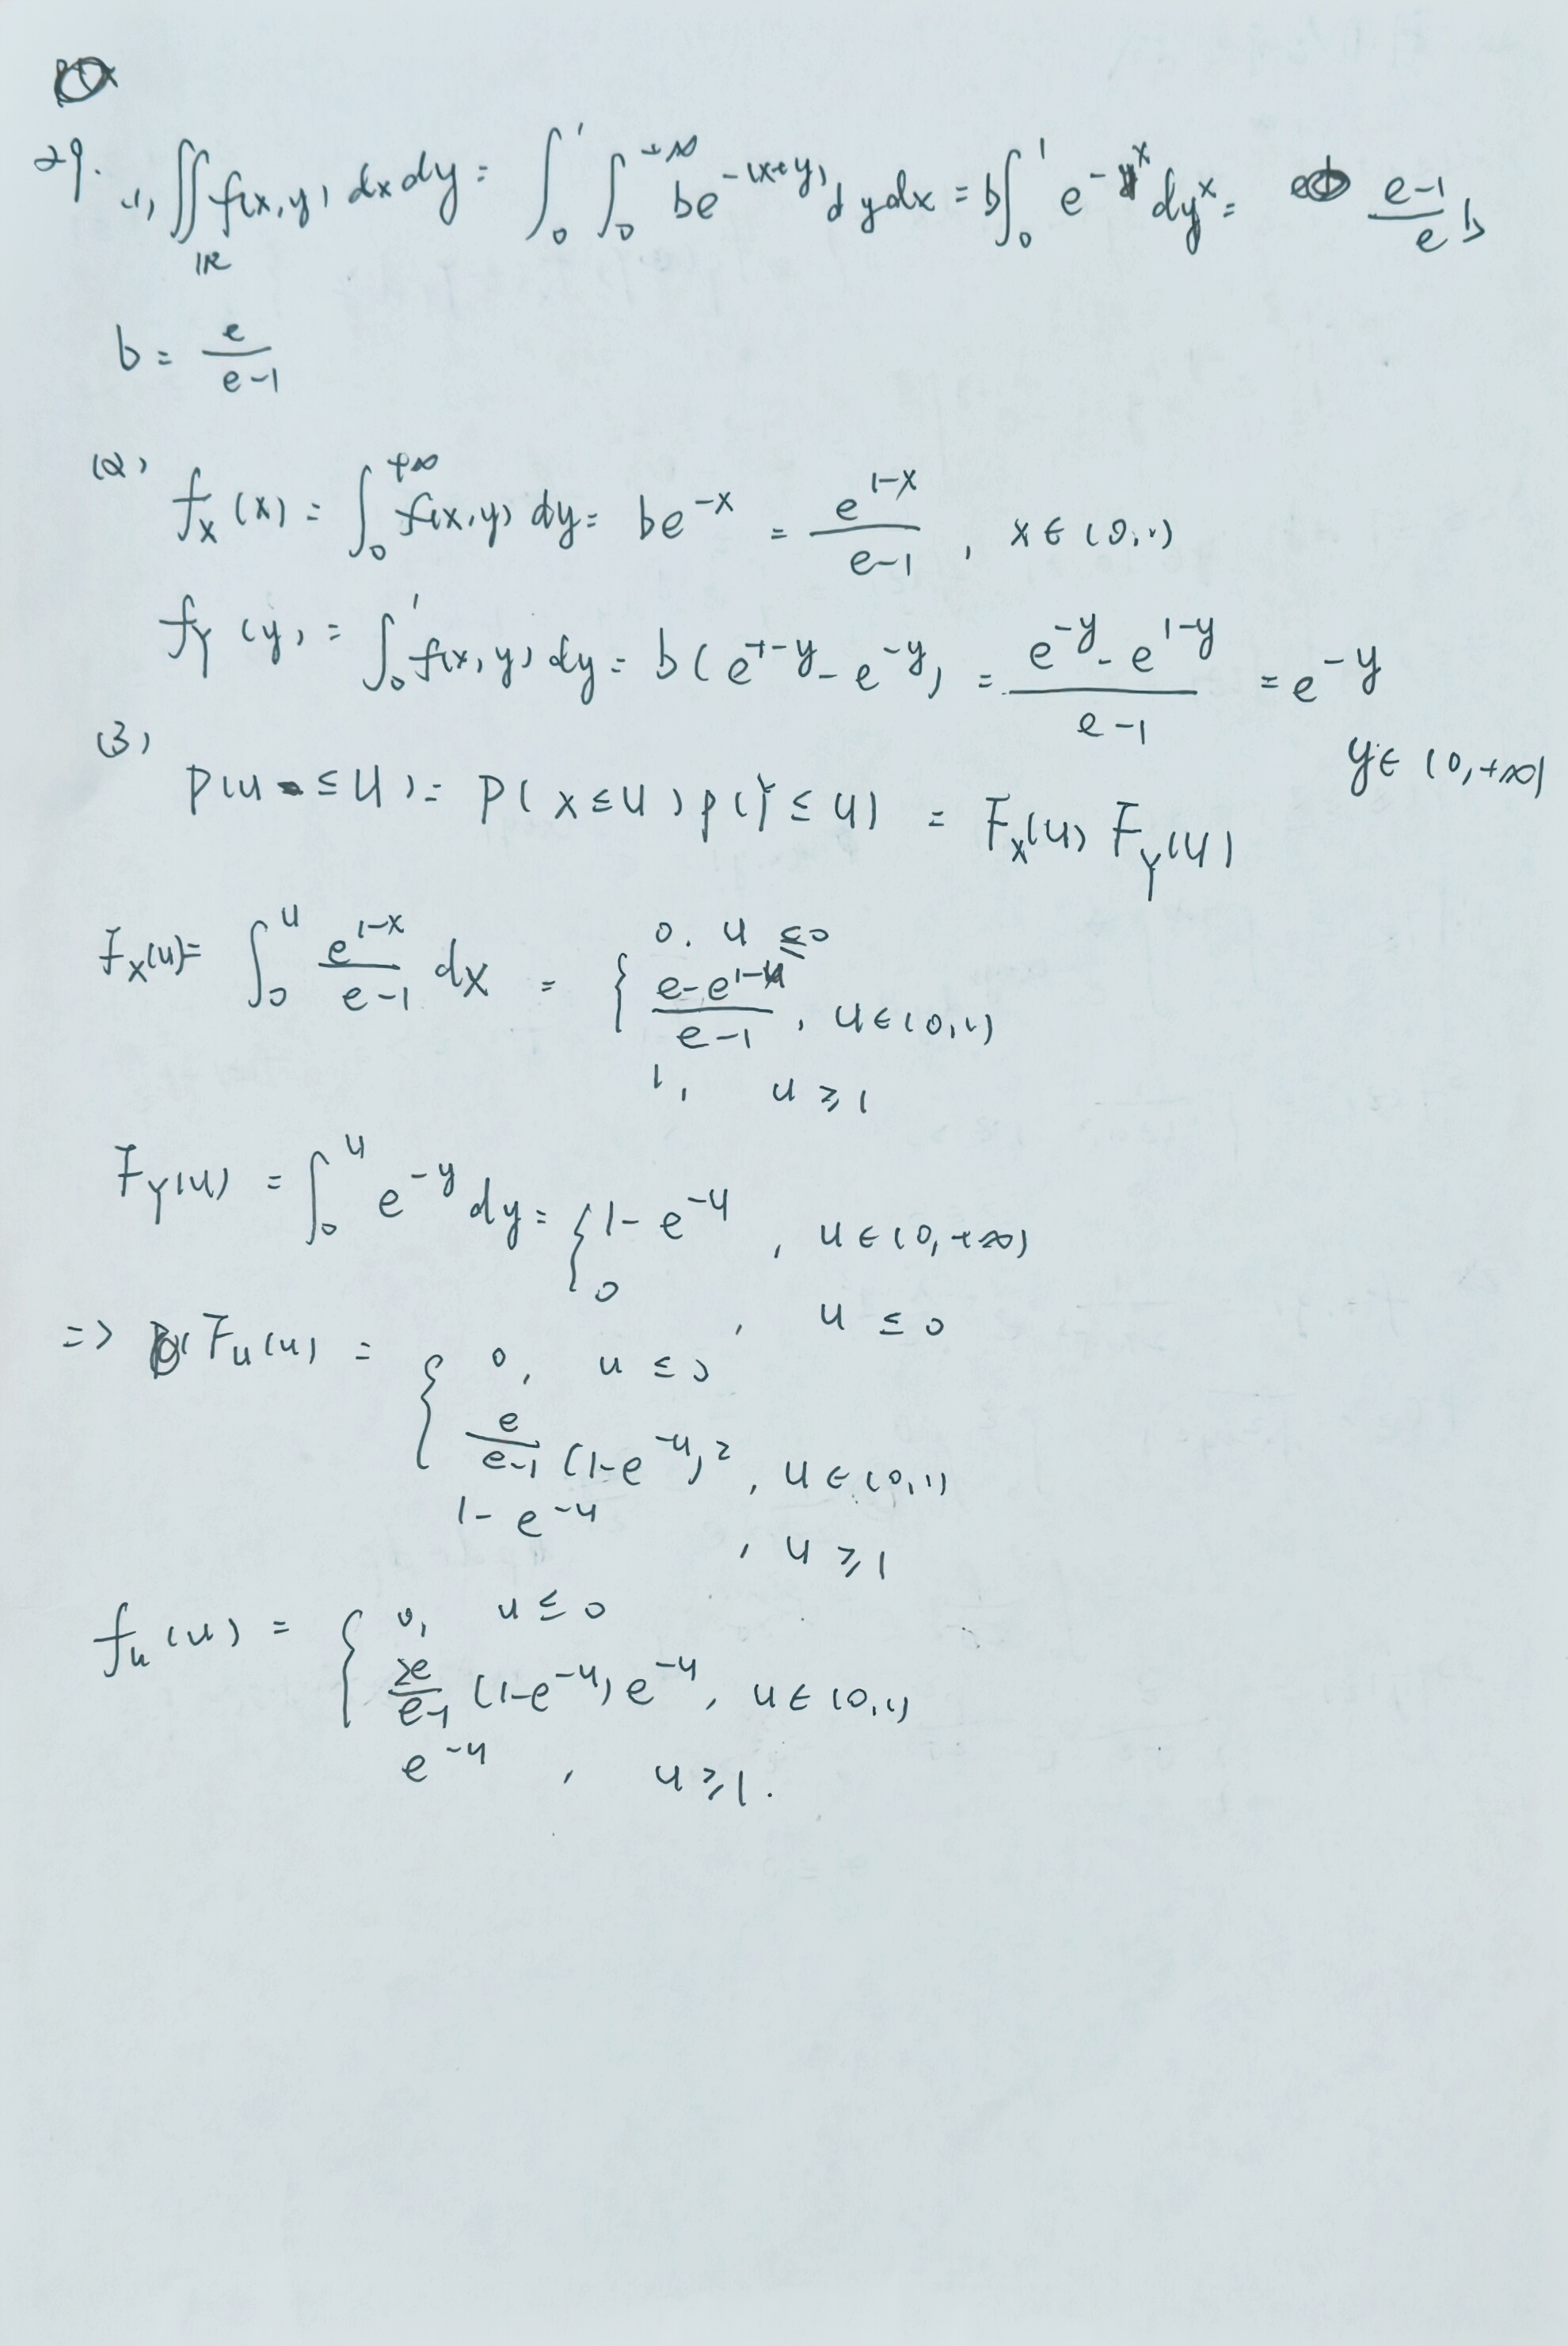 29. (1) ∬_{IR} f(x,y) dxdy = ∫_0^1 ∫_0^{+∞} be^{-(x+y)} dydx = b∫_0^1 e^{-x} dx = \frac{e-1}{e} b
b = \frac{e}{e-1}
(2) f_X(x) = ∫_0^{+∞} f(x,y) dy = be^{-x} = \frac{e^{1-x}}{e-1}, x∈(0,1)
f_Y(y) = ∫_0^1 f(x,y) dy = b(e^{-1-y} - e^{-y}) = \frac{e^{-y} - e^{1-y}}{e-1} = e^{-y}
y∈(0,+∞)
(3) P(U ≤ u) = P(X ≤ u) P(Y ≤ u) = F_X(u) F_Y(u)
F_X(u) = ∫_0^u \frac{e^{1-x}}{e-1} dx = { 0, u ≤ 0
\frac{e-e^{1-u}}{e-1}, u∈(0,1)
1, u ≥ 1
F_Y(u) = ∫_0^u e^{-y} dy = { 1-e^{-u}, u∈(0,+∞)
0, u ≤ 0
=> F_U(u) = { 0, u ≤ 0
\frac{e}{e-1} (1-e^{-u})^2, u∈(0,1)
1-e^{-u}, u ≥ 1
f_U(u) = { 0, u ≤ 0
\frac{2e}{e-1} (1-e^{-u}) e^{-u}, u∈(0,1)
e^{-u}, u ≥ 1.